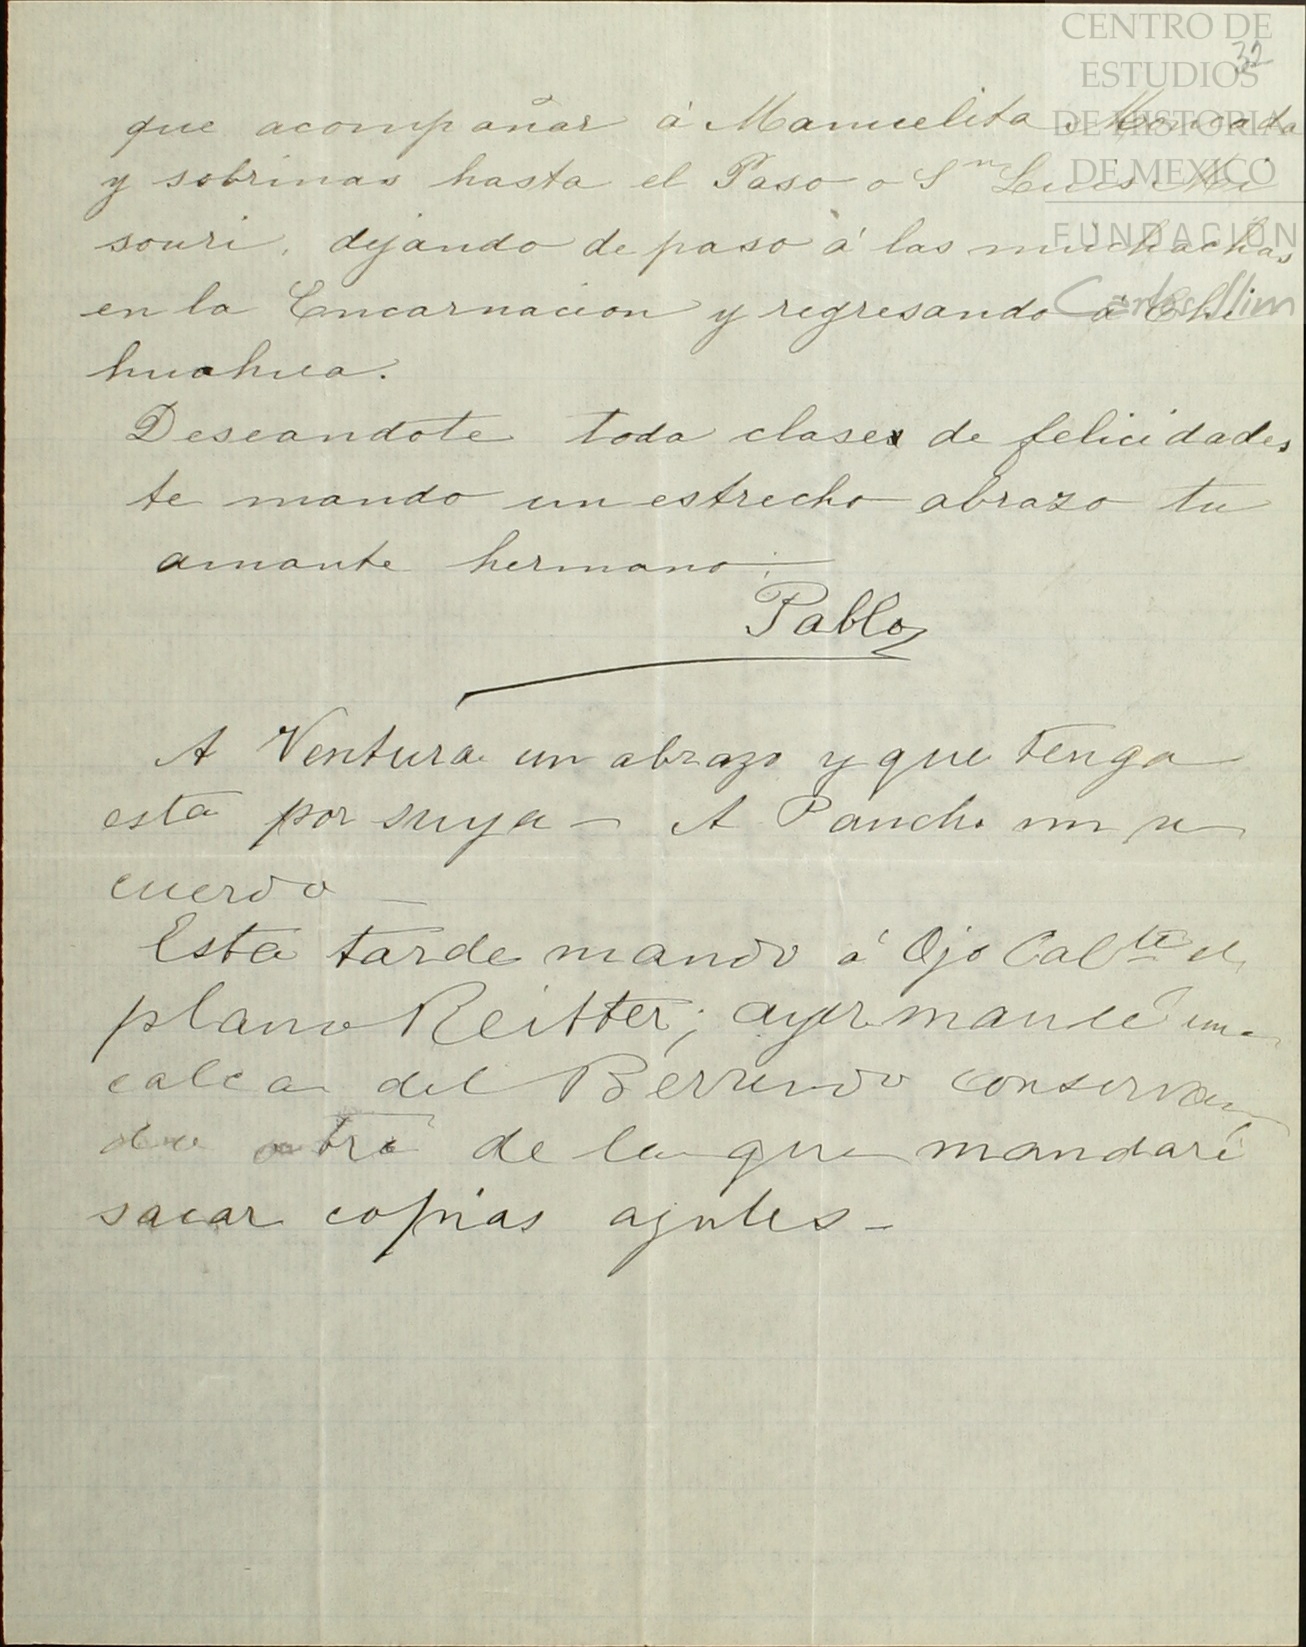 CENTRO DE
ESTUDIOS
DE HISTORIA
DE MEXICO
FUNDACIÓN
Carlos Slim
32
que acompañar á Manuelita Moncada
y sobrinas hasta el Paso o Sn Luis Mi
souri, dejando de paso á las muchachas
en la Encarnacion y regresando á Chi
huahua.
Deseandote toda clase de felicidades
te mando un estrecho abrazo tu
amante hermano.
Pablo
A Ventura un abrazo y que tenga
esta por suya — A Pancho un re
cuerdo —
Esta tarde mando á Ojo Calte el
plano Reitter; ayer mandé una
calca del Berrendo conservan
do otra de la que mandaré
sacar copias azules —